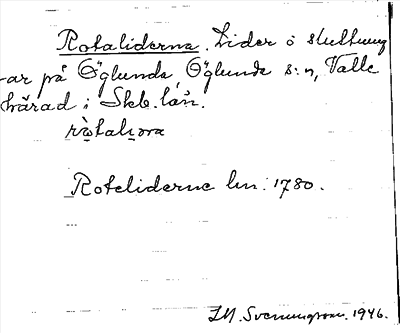 Rotaliderna. Lider o sluttning
-ar på Öglunda, Öglunda s:n, Valle
härad i Skb. län.
Roteliderne lm: 1780.
I.M. Svenungsson. 1946.